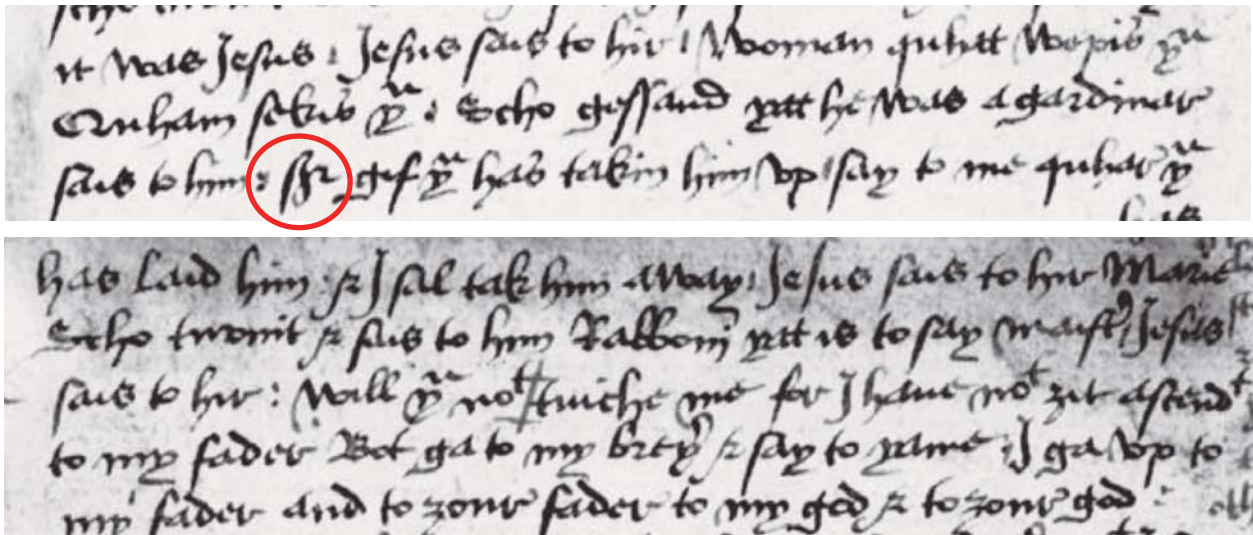 it was Jesus : Jesus sais to hir : Woman quhat wepis yᵘ
Quham sekis yᵘ : Scho gessand yat he was a gardinar
sais to him : sʒr gif yᵘ has takin him vp / say to me quhar yᵘ
has
has laid him : & I sal tak him away : Jesus sais to hir Marie
Scho turnit & sais to him Rabboni yat is to say maist' Jesus
sais to hir : Will yᵘ noᵗ tuiche me for I haue noᵗ zit ascendᵗ
to my fader Bot ga to my brey' & say to yame : I ga vp to
my fader and to zour fader to my god & to zour god :